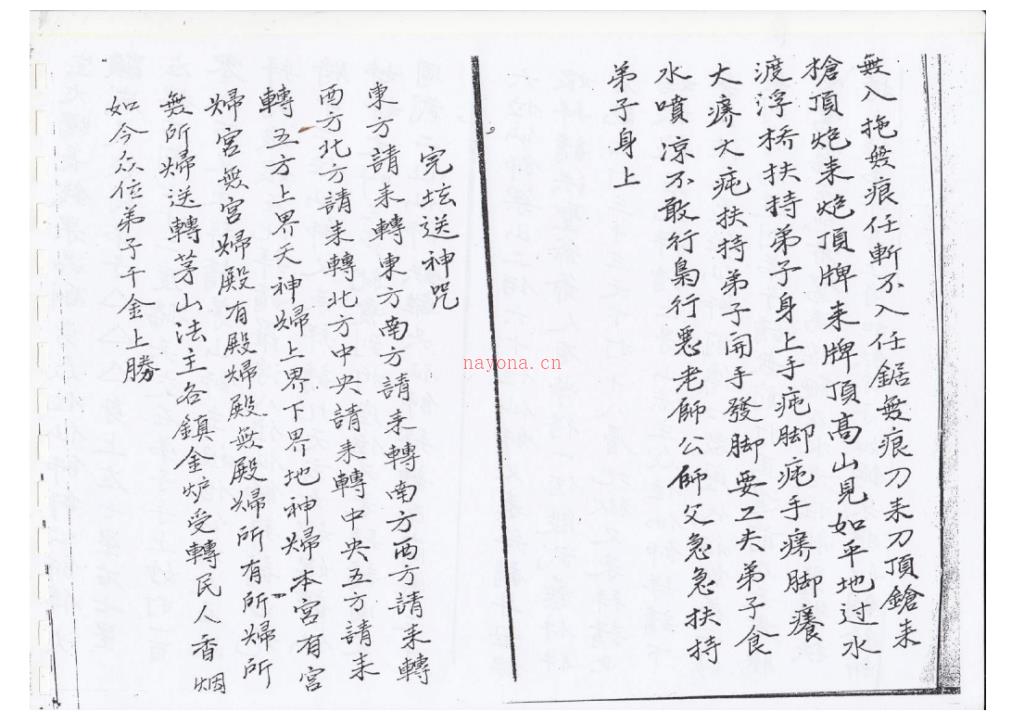 無入拖無痕任斬不入任鋸無痕刀来刀頂鎗来
槍頂炮来炮頂牌来牌頂高山見如平地过水
渡浮桥扶持弟子身上手疤脚疤手痹脚癢
大痹大疤扶持弟子開手發脚要工夫弟子食
水噴凉不敢行梟行惡老師公師父急急扶持
弟子身上
完坛送神咒
東方請来轉東方南方請来轉南方西方請来轉
西方北方請来轉北方中央請来轉中央五方請来
轉五方上界天神歸上界下界地神歸本宮有宮
歸宮無宮歸殿有殿歸殿無殿歸所有所歸所
無所歸送轉茅山法主各鎮金炉受轉民人香烟
如今众位弟子千金上勝
nayona.cn